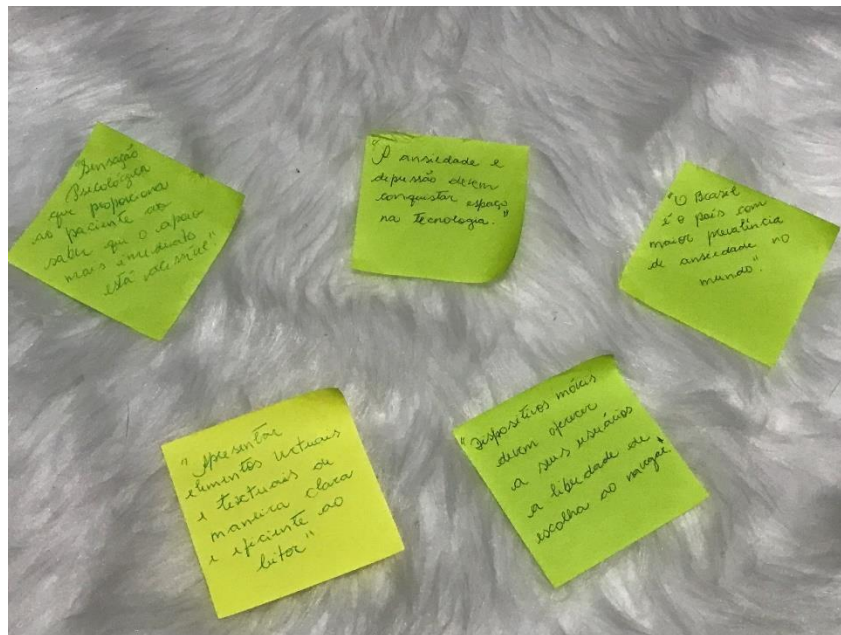 "Sensação
Psicológica
que proporciona
ao paciente ao
saber que o apoio
mais imediato
está acessível"
"A ansiedade e
depressão devem
conquistar espaço
na Tecnologia."
"O Brasil
é o país com
maior prevalência
de ansiedade no
mundo".
"Apresentar
elementos
e textuais de
maneira clara
e eficiente ao
leitor"
"Dispositivos móveis
devem oferecer
a seus usuários
a liberdade de
escolha ao navegar"